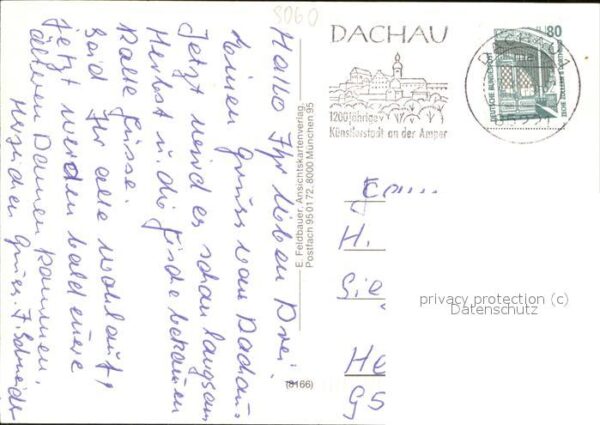 8060
DACHAU
1200jährige
Künstlerstadt an der Amper
80
DEUTSCHE BUNDESPOST
Hallo Ihr lieben Drei!
Einen Gruss von Dachau.
Jetzt wird es schon langsam
Herbst u. die Fische bekommen
kalte Füsse.
Seid Ihr alle wohlauf?
Jetzt werden bald eure
älteren Damen kommen.
Herzlichen Gruss. F. Schneider
E. Feldbauer, Ansichtskartenverlag,
Postfach 950172, 8000 München 95
(8166)
Fam
H.
Sie
He
95
privacy protection (c)
Datenschutz